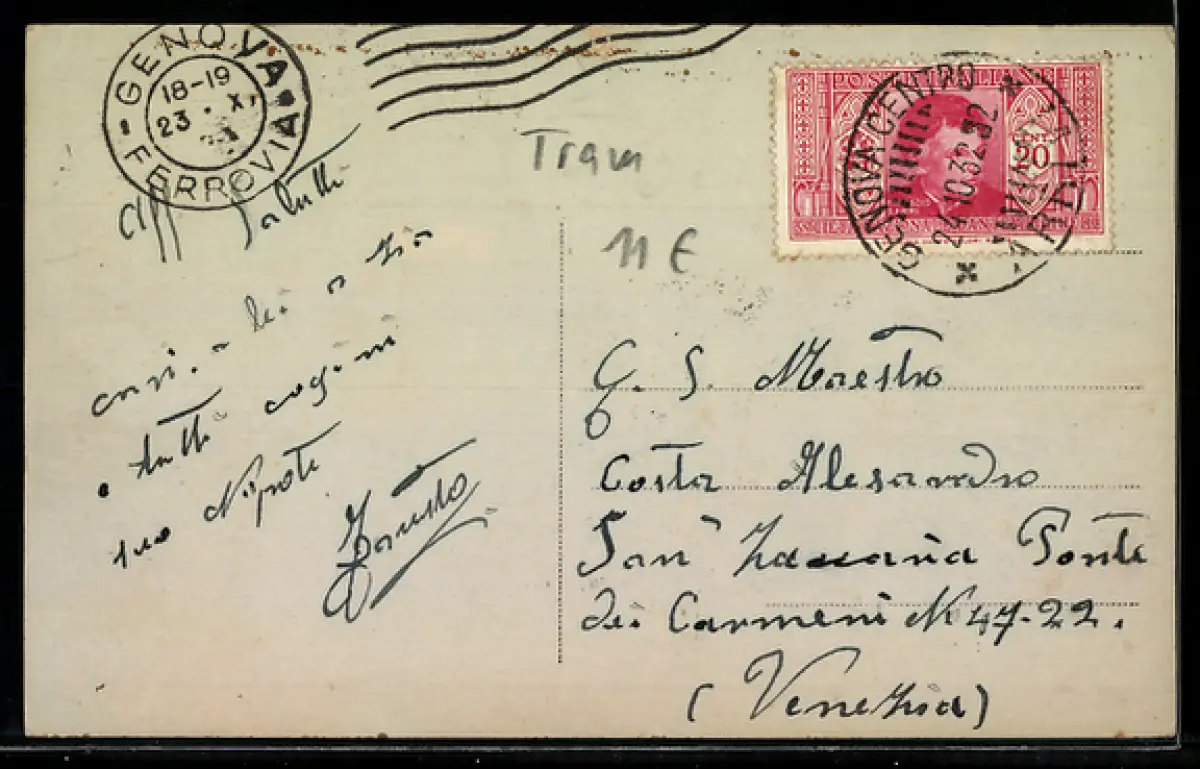 GENOVA
FERROVIA
18-19
23 · X
Tram
11 €
POSTE ITALIANE
CENT. 20
GENOVA CENTRO
24.10.32
ARRI
Aff Saluti
a lei a zia
e tutti cugini
suo Nipote
Fausto
G. S. Maestro
Costa Alesandro
San Zaccaria Ponte
dei Carmeni N 47-22.
(Venezia)